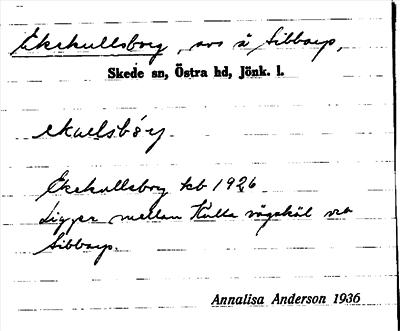 Ekekullsborg, avs å Sibbarp,
Skede sn, Östra hd, Jönk. l.
ekullsbôrj
Ekekullsborg kb 1926
Ligger mellan Kulla vägskäl och
Sibbarp.
Annalisa Anderson 1936